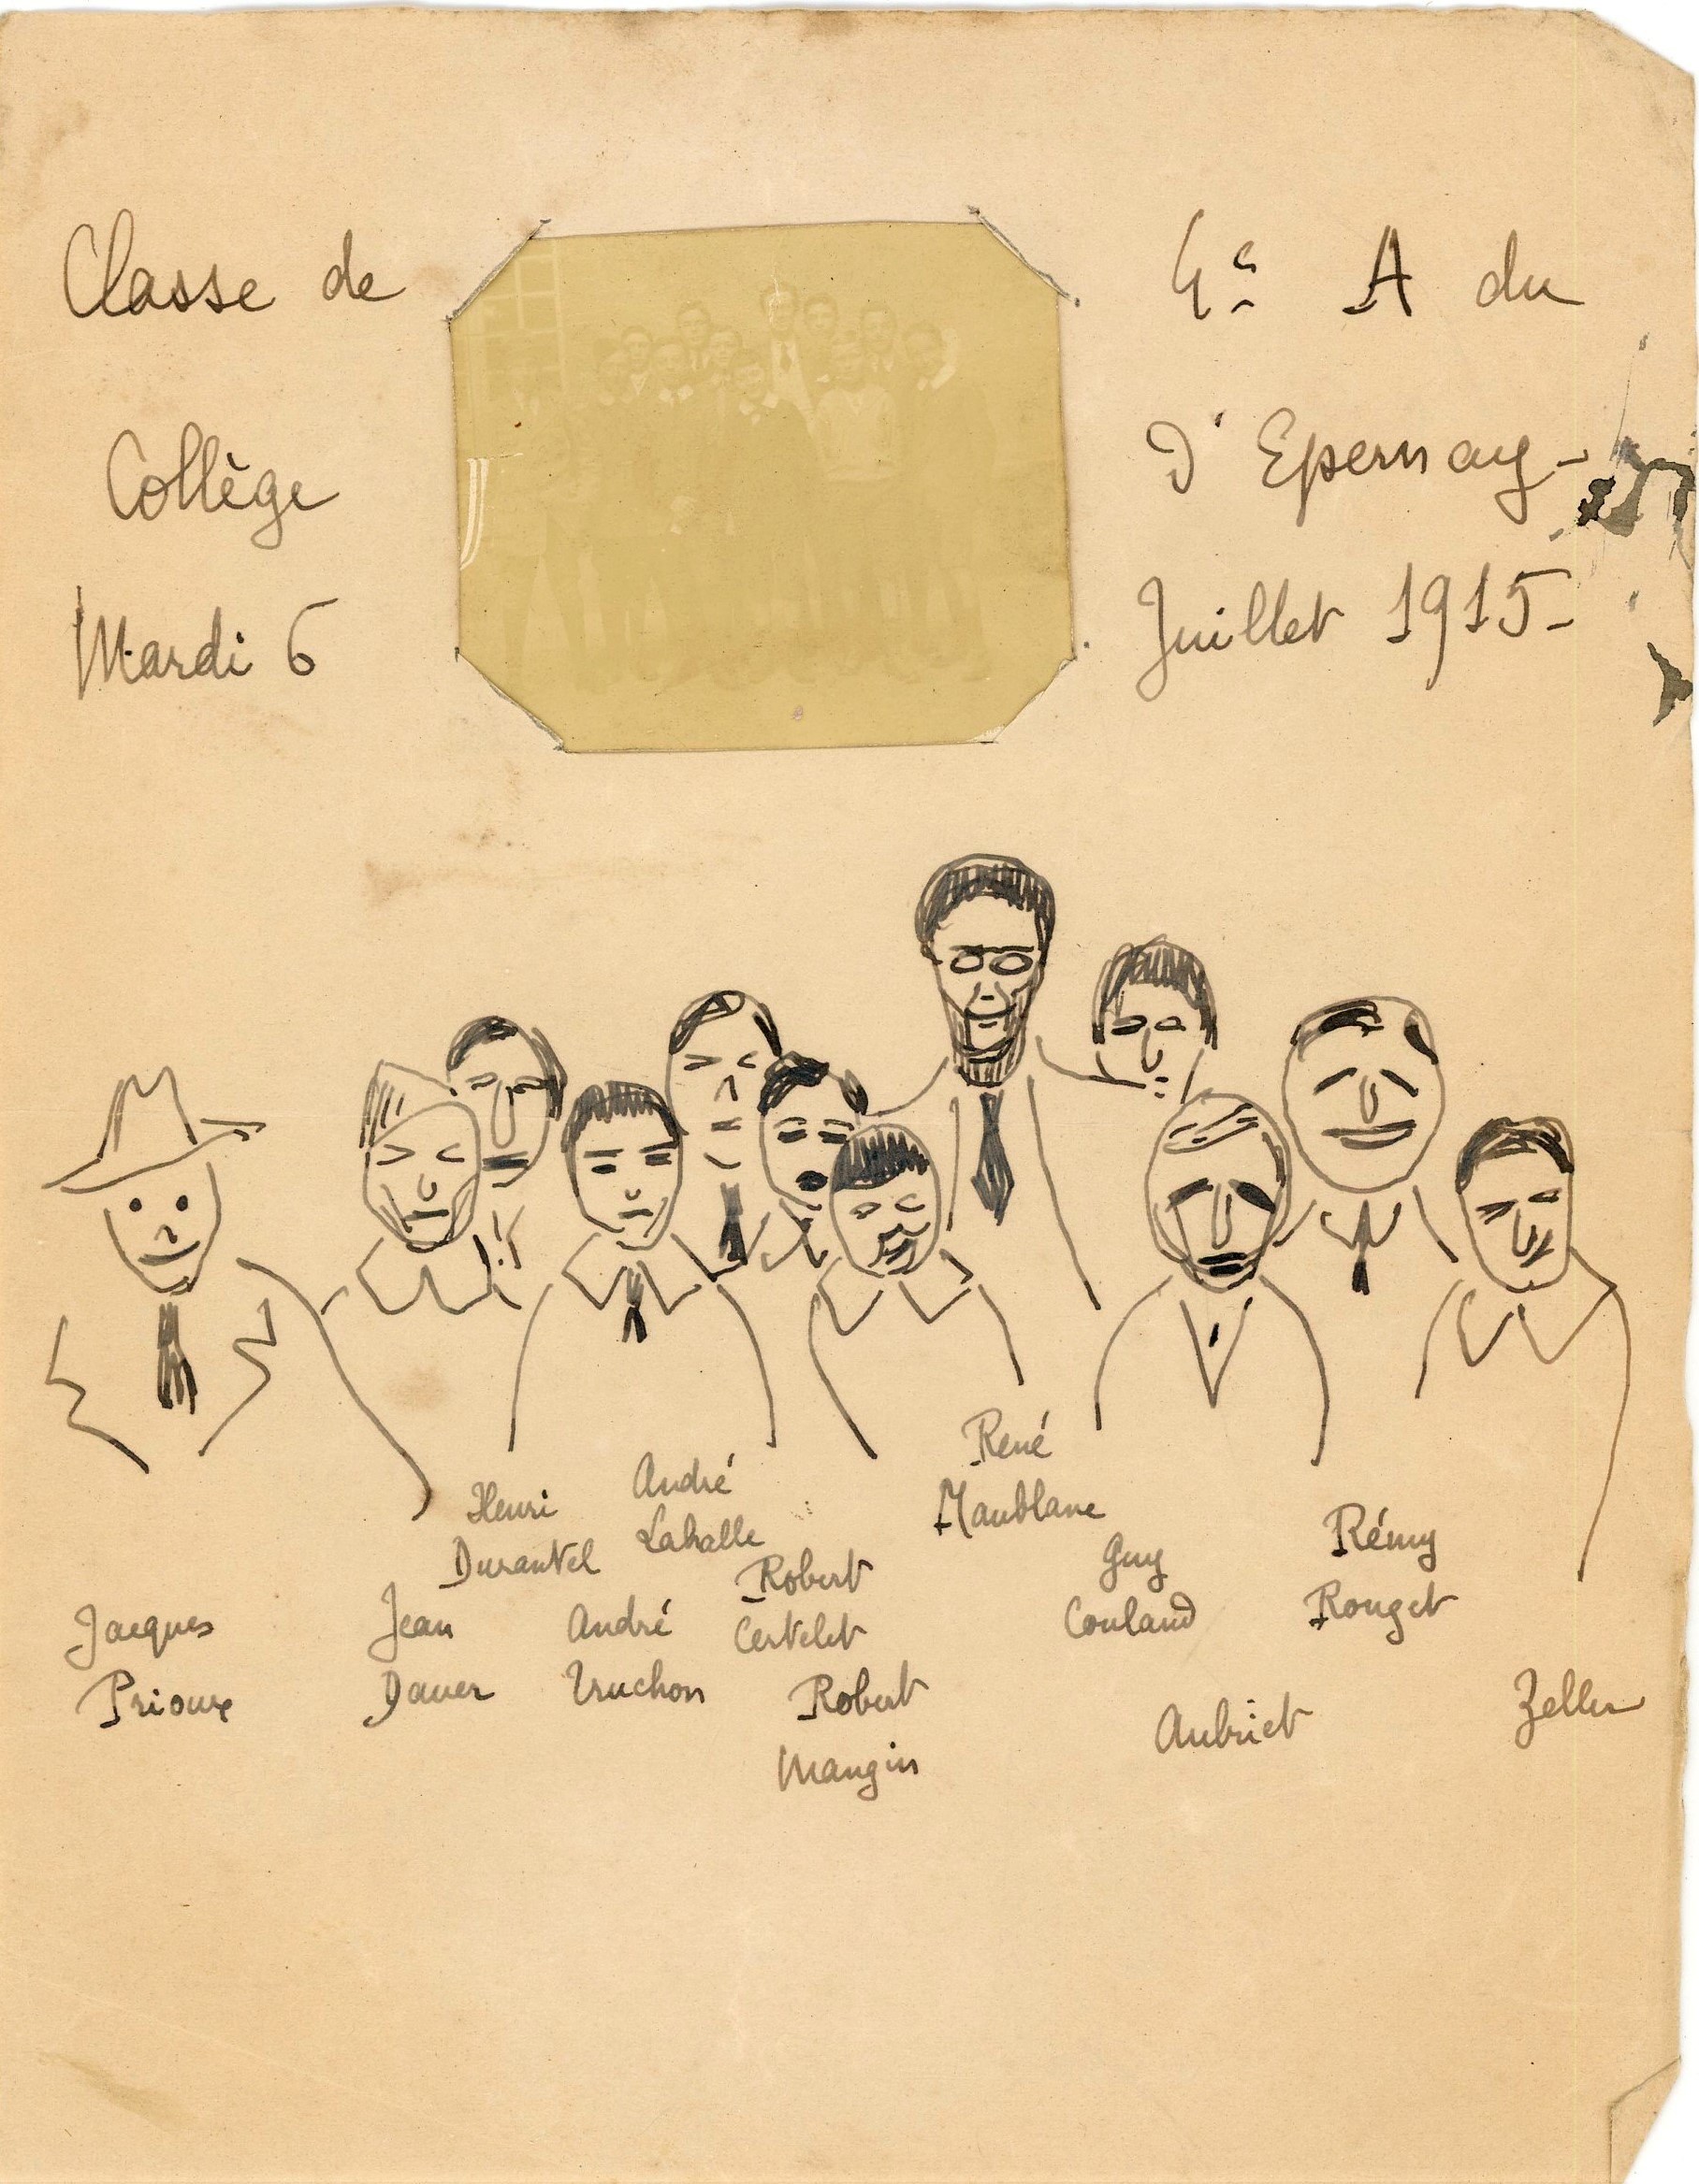 Classe de 4e A du
Collège D'Epernay-
Mardi 6 Juillet 1915-
René
Maublanc
André
Lahalle
Henri
Durantel
Rémy
Rouget
Guy
Couland
Robert
Certelet
Jacques
Prioux
Jean
Daver
André
Truchon
Robert
Mangin
Aubriet
Zeller